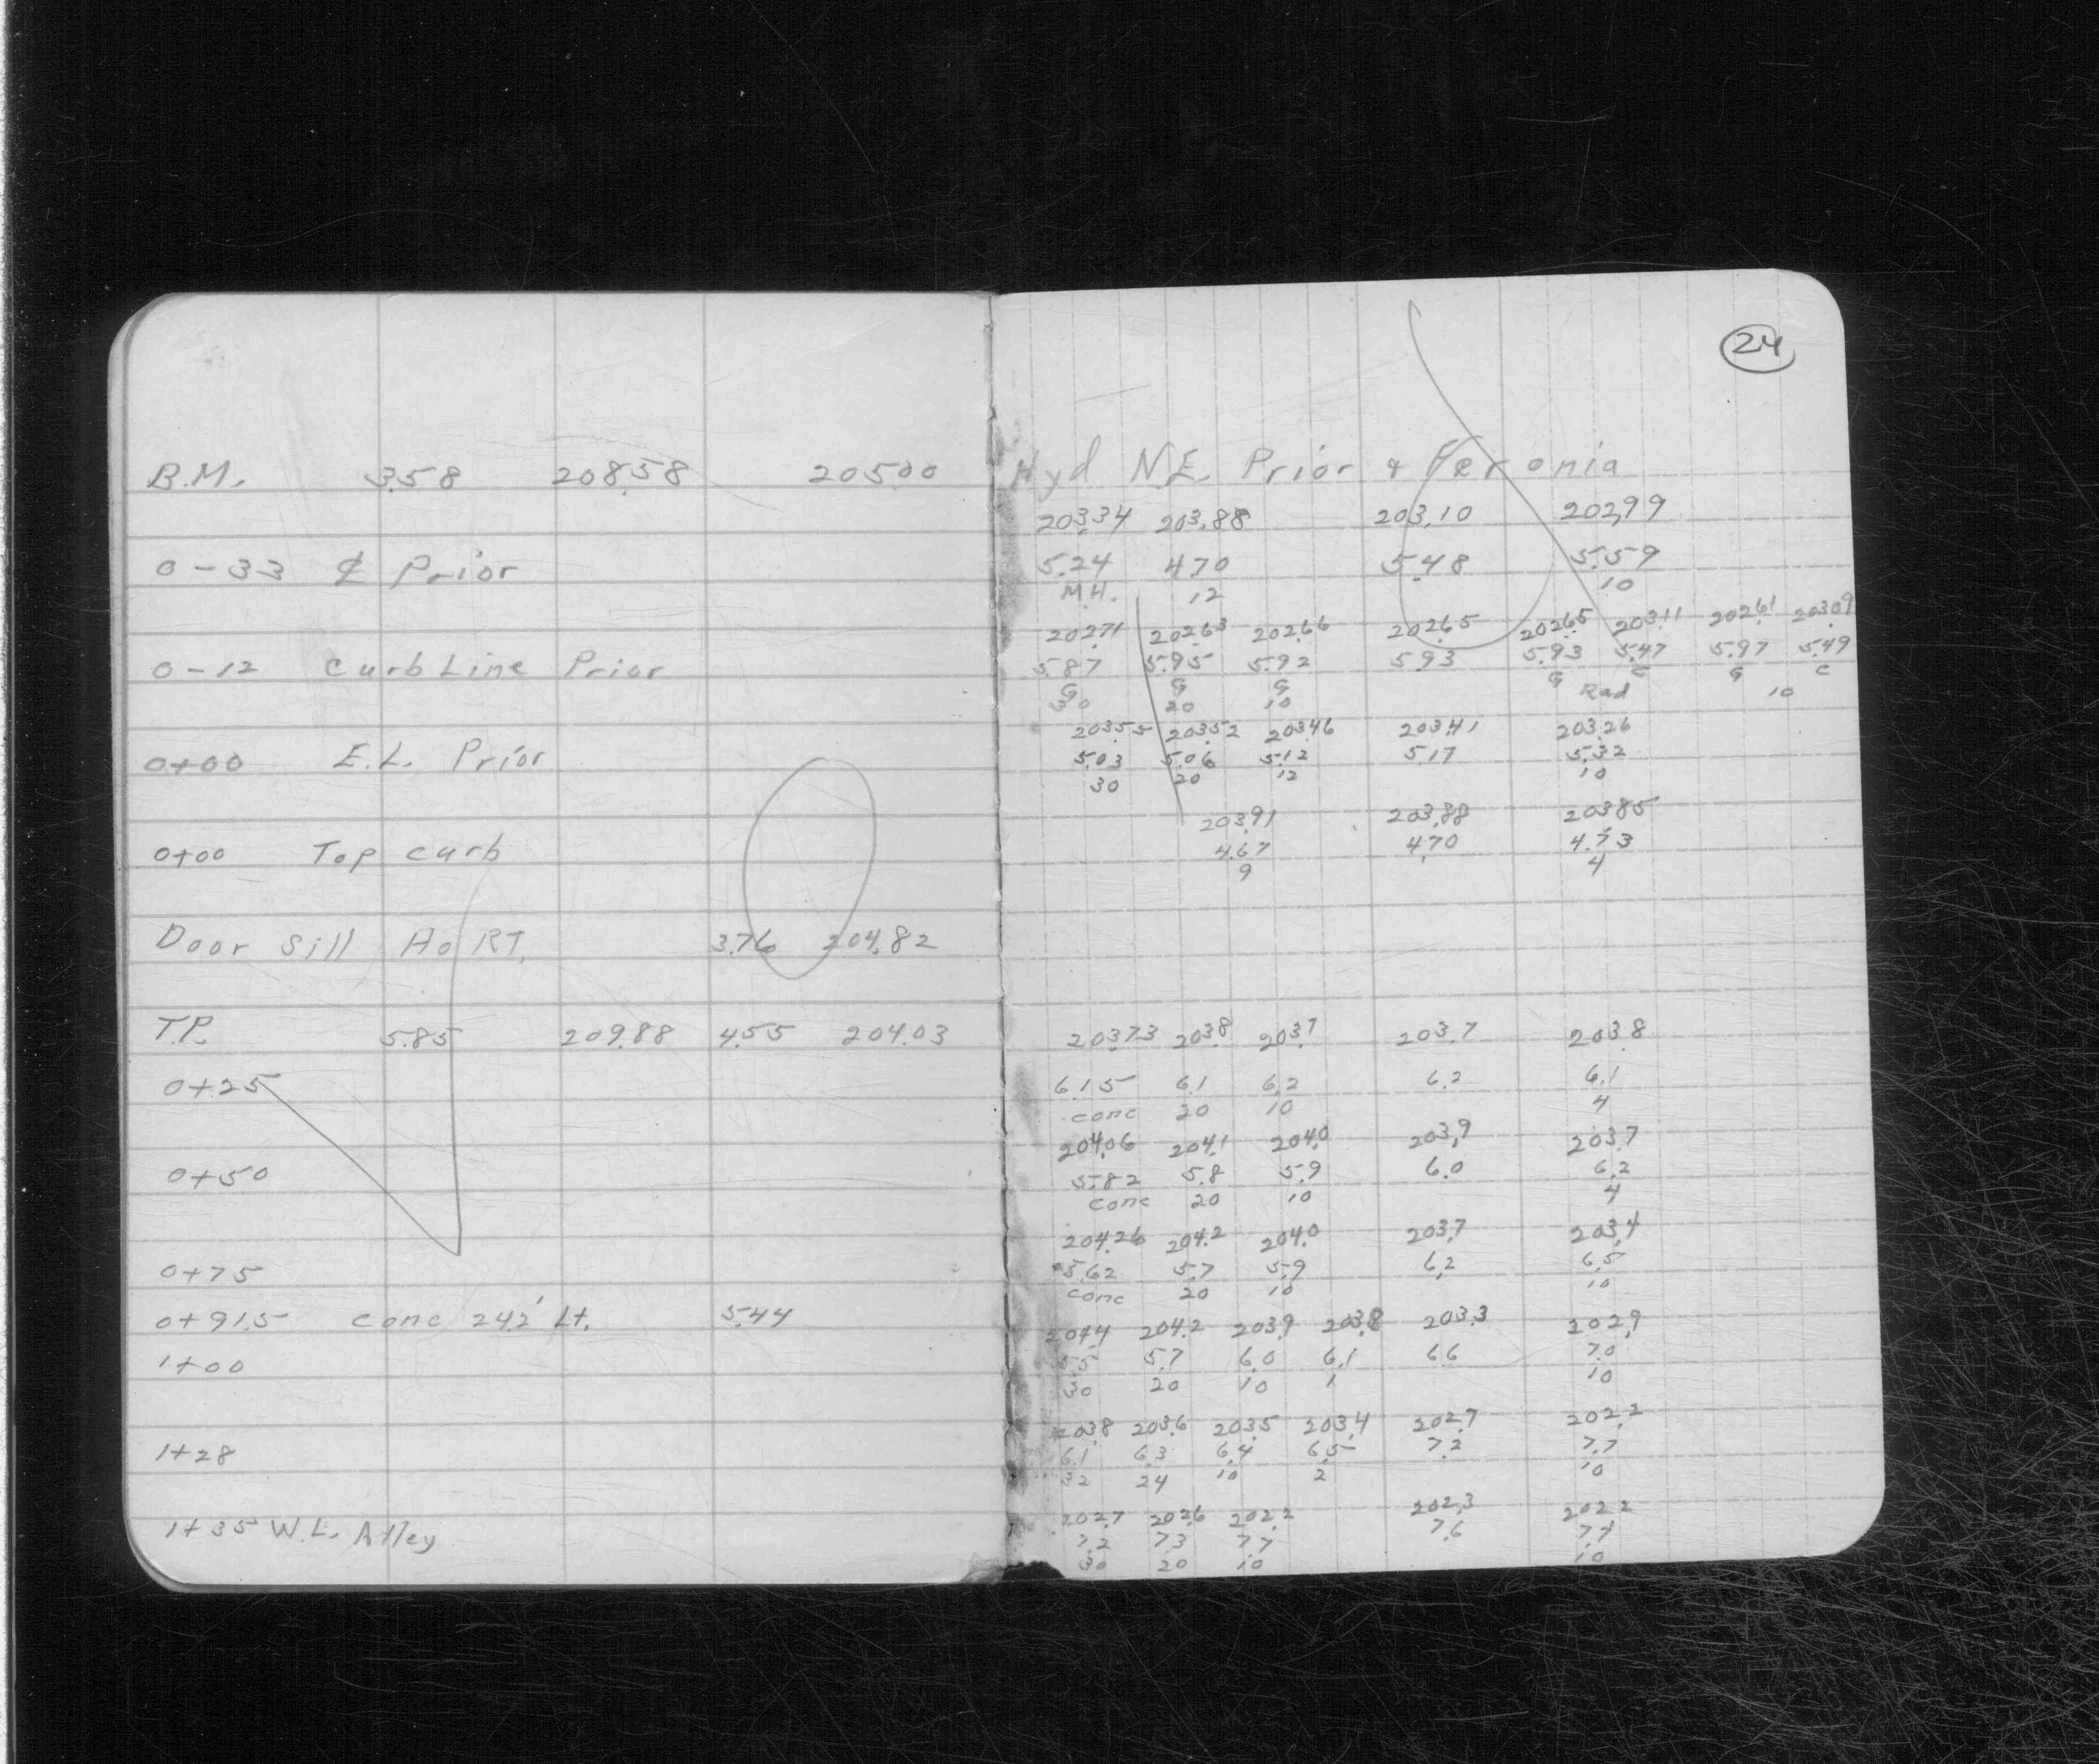 24
B.M. 3.58 208.58 205.00
0-33 ₵ Prior
0-12 Curb Line Prior
0+00 E.L. Prior
0+00 Top curb
Door Sill Ho RT. 3.76 204.82
T.P. 5.85 209.88 4.55 204.03
0+25
0+50
0+75
0+91.5 conc 24.2' Lt. 5.44
1+00
1+28
1+35 W.L. Alley
Hyd N.E. Prior & Feronia
203.34 203.88 203.10 202.99
5.24 4.70 5.48 5.59
M.H. 12 10
202.71 202.63 202.66 202.65 202.65 203.11 202.61 203.09
5.87 5.95 5.92 5.93 5.93 5.47 5.97 5.49
G G G G C G C
30 20 10 Rad 10
203.55 203.52 203.46 203.41 203.26
5.03 5.06 5.12 5.17 5.32
30 20 12 10
203.91 203.88 203.85
4.67 4.70 4.73
9 4
203.73 203.8 203.7 203.7 203.8
6.15 6.1 6.2 6.2 6.1
conc 20 10 4
204.06 204.1 204.0 203.9 203.7
5.82 5.8 5.9 6.0 6.2
conc 20 10 4
204.26 204.2 204.0 203.7 203.4
5.62 5.7 5.9 6.2 6.5
conc 20 10 10
204.4 204.2 203.9 203.8 203.3 202.9
5.5 5.7 6.0 6.1 6.6 7.0
30 20 10 1 10
203.8 203.6 203.5 203.4 202.7 202.2
6.1 6.3 6.4 6.5 7.2 7.7
32 24 10 2 10
202.7 202.6 202.2 202.3 202.2
7.2 7.3 7.7 7.6 7.7
30 20 10 10